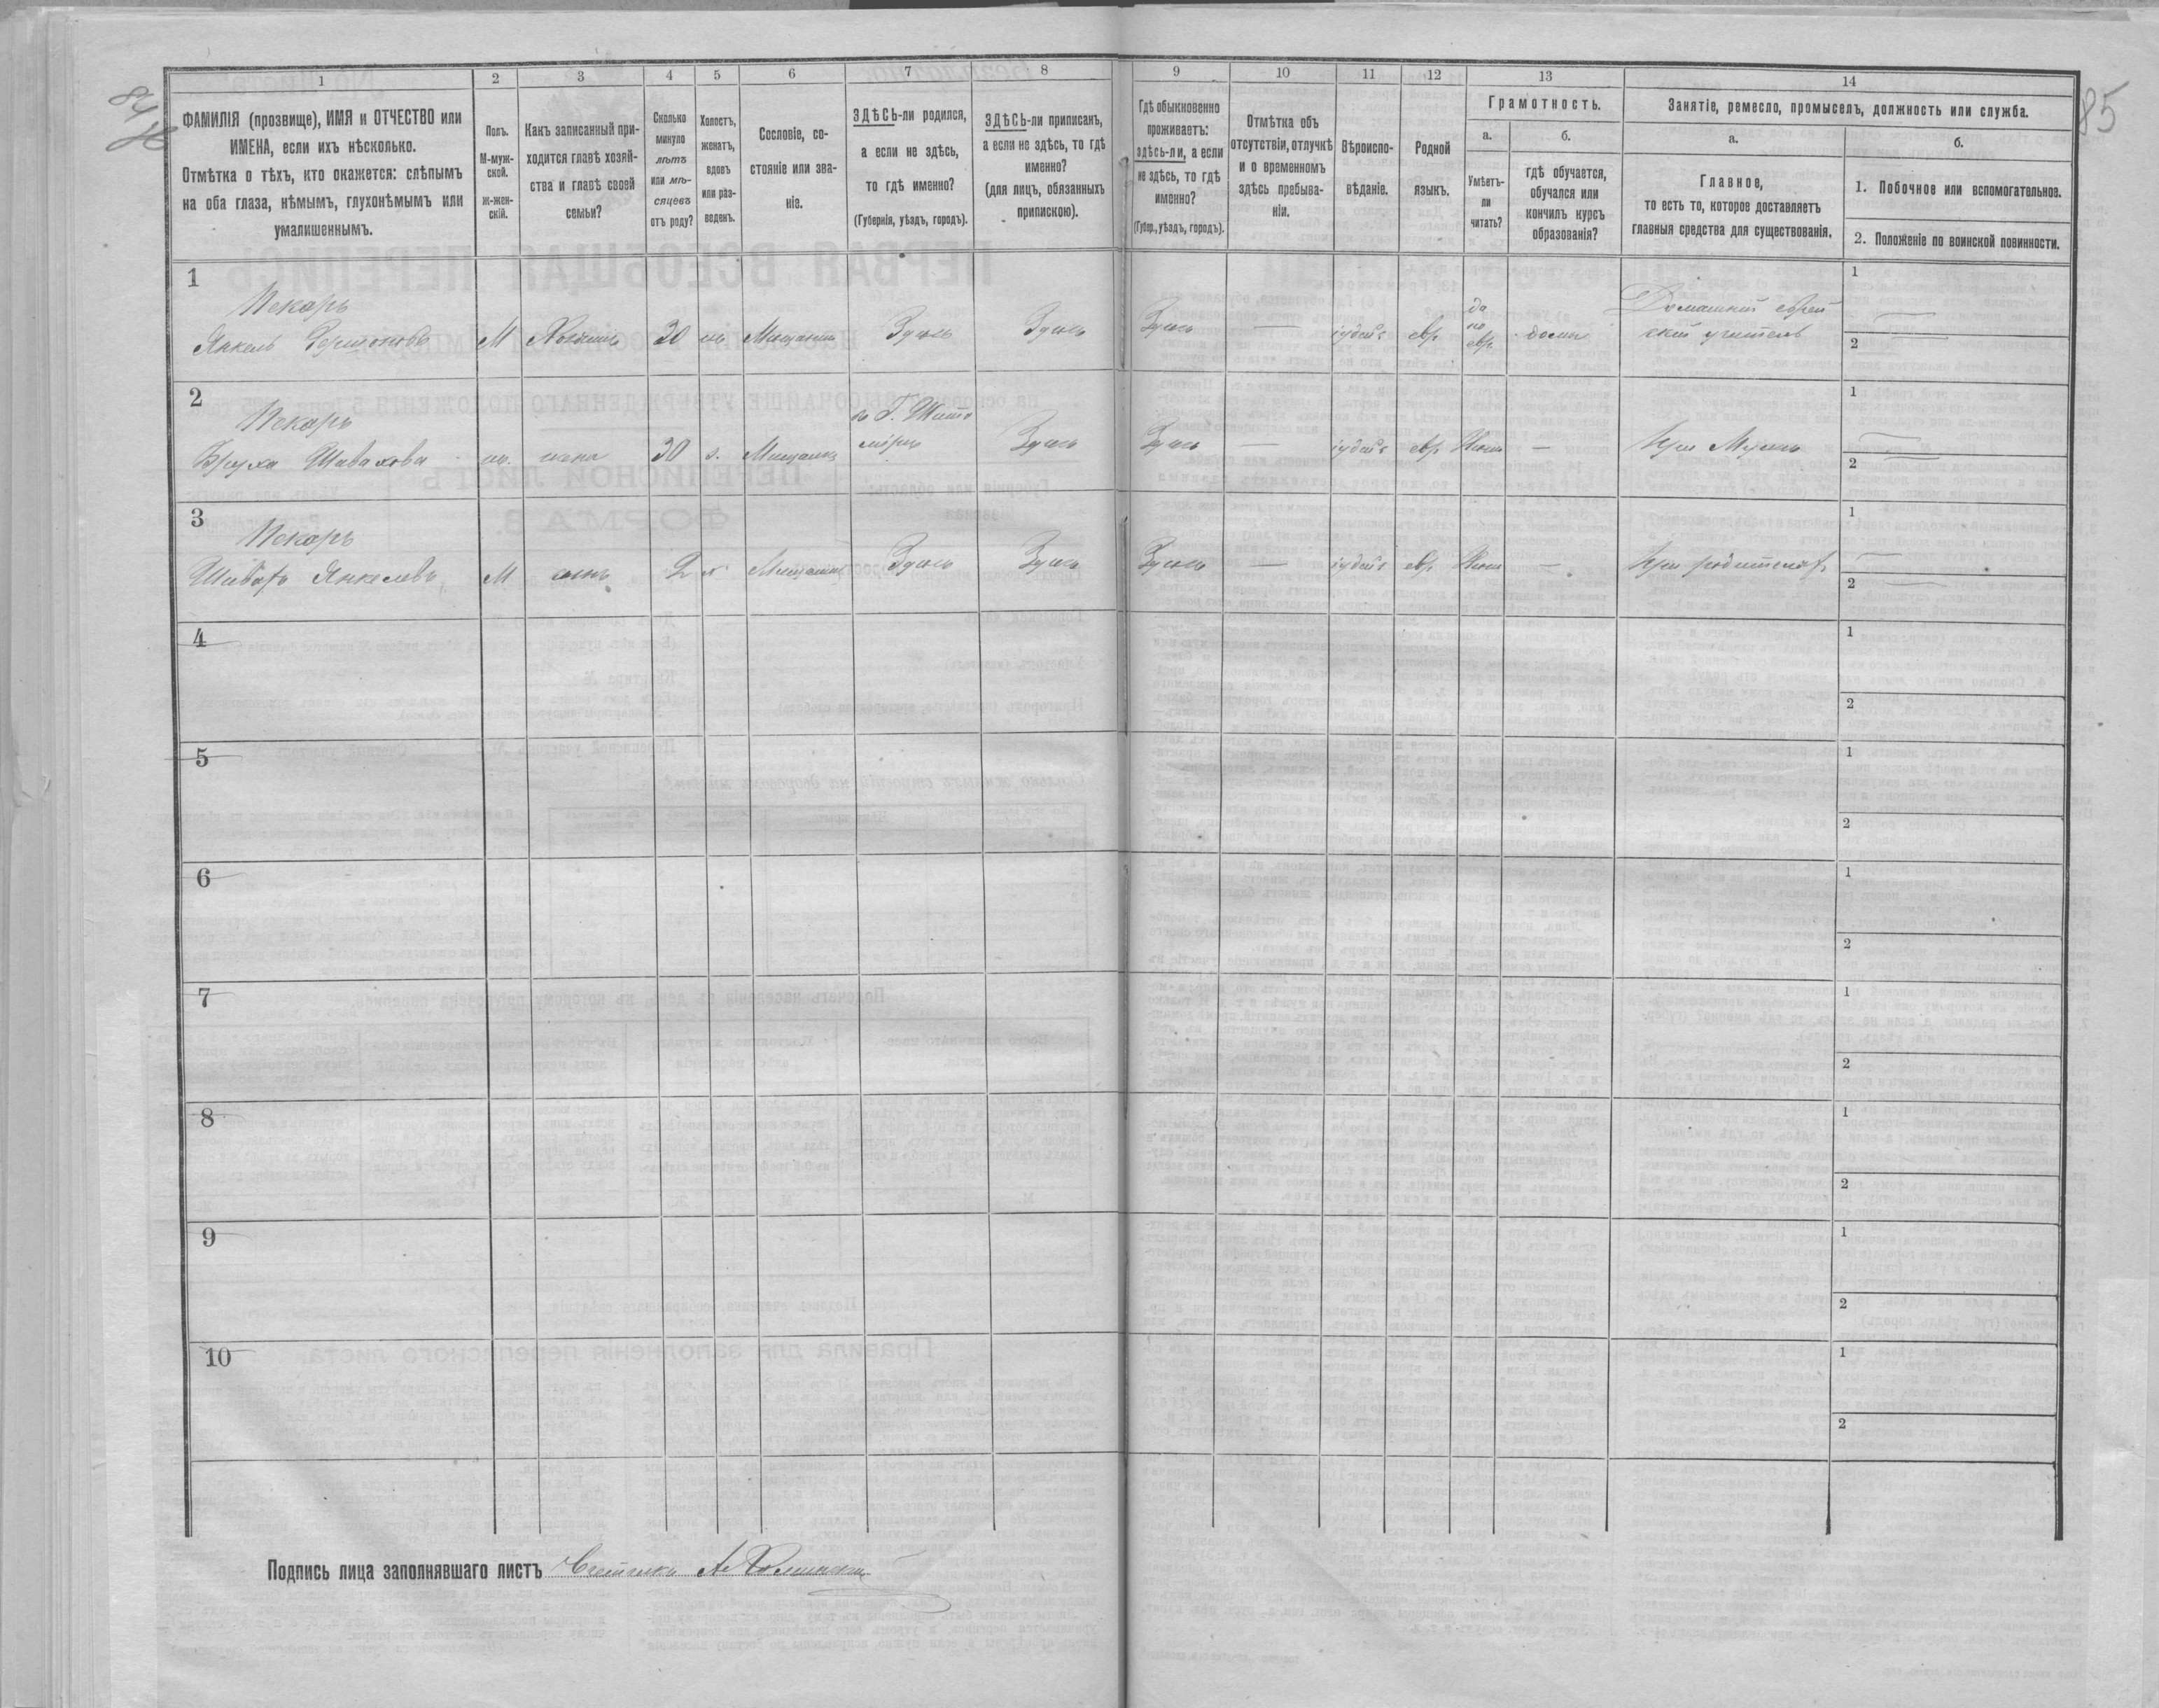 84
85
1
2
3
4
5
6
7
8
9
10
11
12
13
14
ФАМИЛІЯ (прозвище), ИМЯ и ОТЧЕСТВО или
ИМЕНА, если ихъ нѣсколько.
Отмѣтка о тѣхъ, кто окажется: слѣпымъ
на оба глаза, нѣмымъ, глухонѣмымъ или
умалишеннымъ.
Полъ.
М-муж-
ской.
Ж-жен-
скій.
Какъ записанный при-
ходится главѣ хозяй-
ства и главѣ своей
семьи?
Сколько
минуло
лѣтъ
или мѣ-
сяцевъ
отъ роду?
Холостъ,
женатъ,
вдовъ
или раз-
веденъ.
Сословіе, со-
стояніе или зва-
ніе.
ЗДѢСЬ-ли родился,
а если не здѣсь,
то гдѣ именно?
(Губернія, уѣздъ, городъ).
ЗДѢСЬ-ли приписанъ,
а если не здѣсь, то гдѣ
именно?
(для лицъ, обязанныхъ
припискою).
Гдѣ обыкновенно
проживаетъ:
здѣсь-ли, а если
не здѣсь, то гдѣ
именно?
(Губер., уѣздъ, городъ).
Отмѣтка объ
отсутствіи, отлучкѣ
и о временномъ
здѣсь пребыва-
ніи.
Вѣроиспо-
вѣданіе.
Родной
языкъ.
Грамотность.
а.
Умѣетъ-
ли
читать?
б.
гдѣ обучается,
обучался или
кончилъ курсъ
образованія?
Занятіе, ремесло, промыселъ, должность или служба.
а.
Главное,
то есть то, которое доставляетъ
главныя средства для существованія.
б.
1. Побочное или вспомогательное.
2. Положеніе по воинской повинности.
1
Пекарь
Янкель
М
Хозяинъ
30
Мещанинъ
Здѣсь
Здѣсь
Здѣсь
—
іудейс
евр.
да
по
евр.
дома
Домашній еврей
скій учитель
1
2
2
Пекарь
Бруха
жена
30
з.
Мещанка
въ Г. Жито
мірѣ
Здѣсь
Здѣсь
—
іудейс
евр.
—
При Мужѣ
1
2
3
Пекарь
Янкелевъ
М
сынъ
2
Мещанинъ
Здѣсь
Здѣсь
Здѣсь
—
іудейс
евр.
—
При родителях
1
2
4
1
2
5
1
2
6
1
2
7
1
2
8
1
2
9
1
2
10
1
2
Подпись лица заполнявшаго листъ Счетчикъ